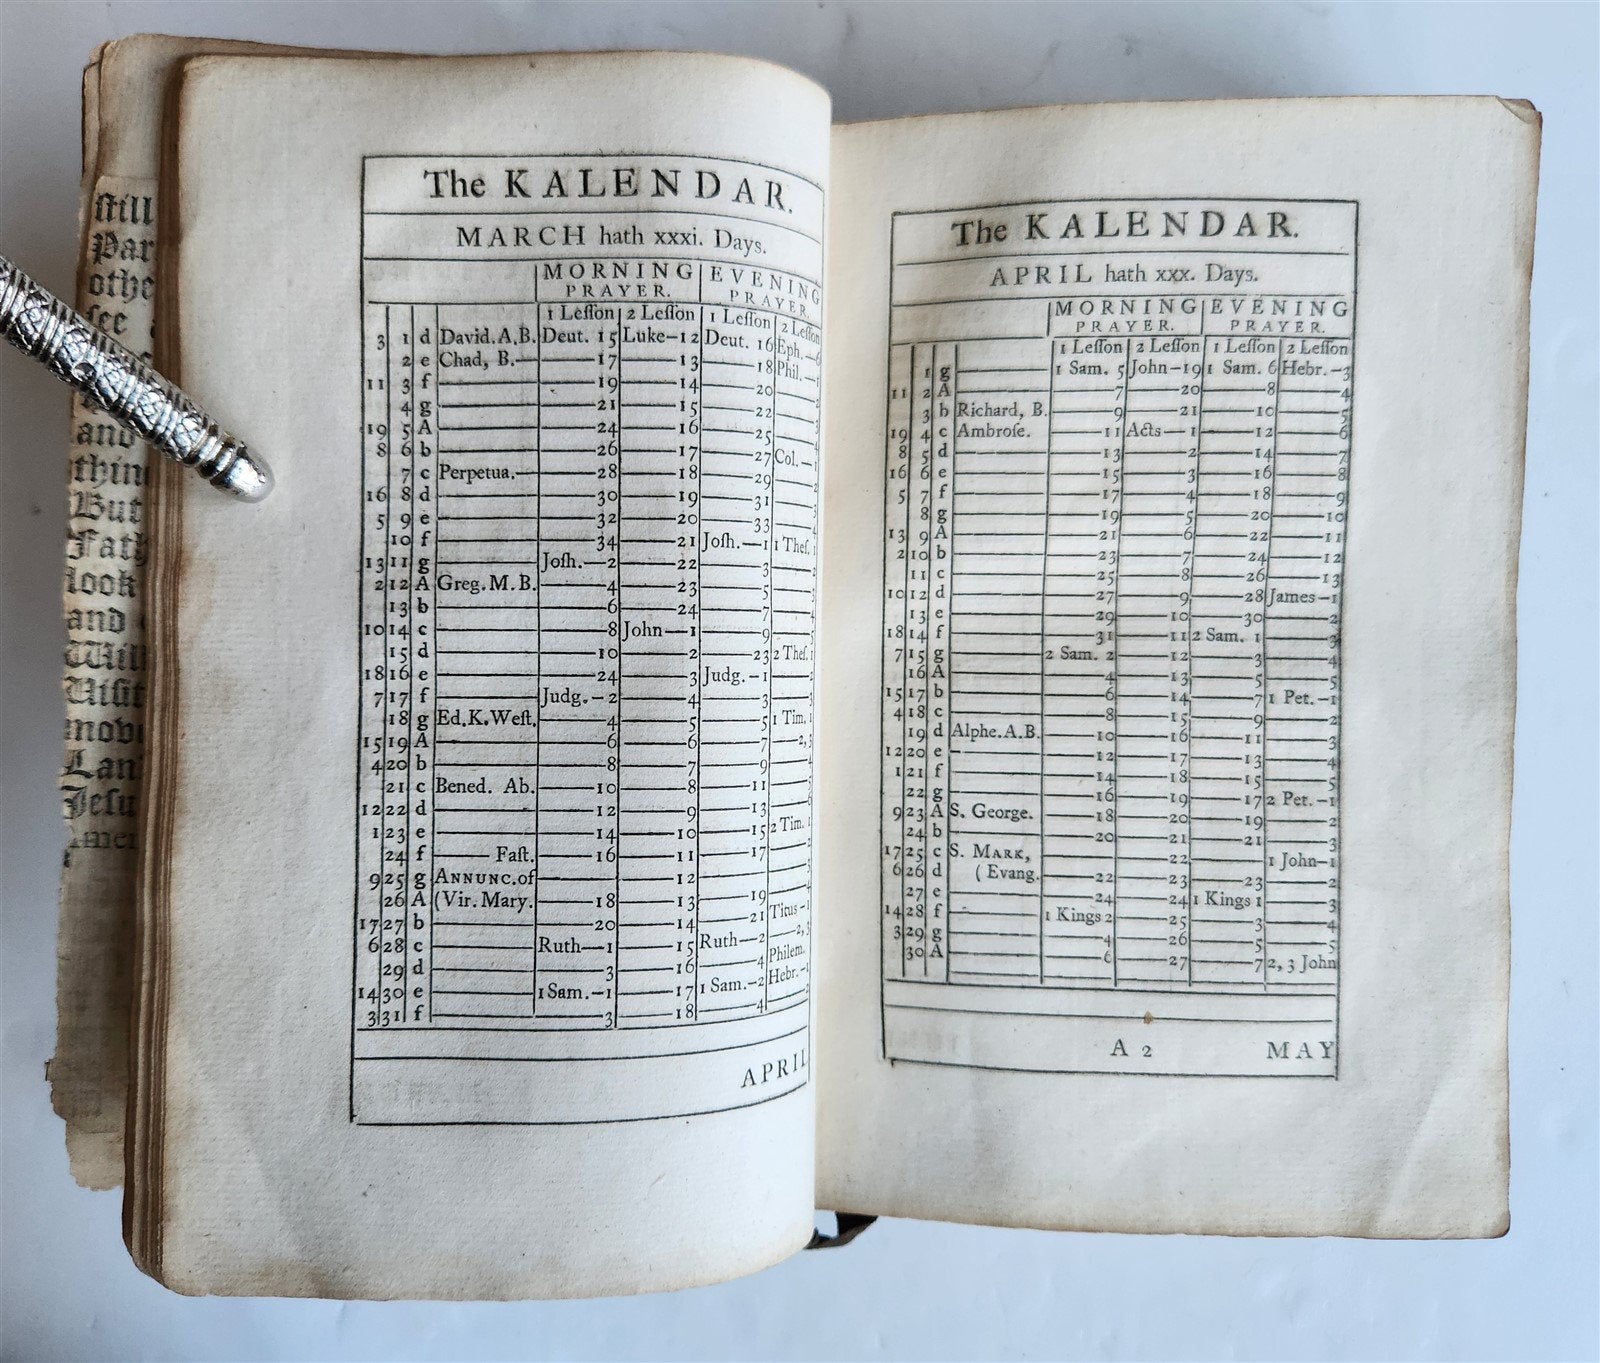 ſtill
Par
othe
ſee
and
thin
But
Fath
look
and
Will
Viſit
move
Lan
Jeſu
Amen
The KALENDAR.
MARCH hath xxxi. Days.
MORNING PRAYER. EVENING PRAYER.
1 Leſſon 2 Leſſon 1 Leſſon 2 Leſſon
3 1 d David. A.B. Deut. 15 Luke—12 Deut. 16 Eph.—6
2 e Chad, B.— 17 13 18 Phil.—1
11 3 f 19 14 20 2
4 g 21 15 22 3
19 5 A 24 16 25 4
8 6 b 26 17 27 Col.—1
7 c Perpetua.— 28 18 29 2
16 8 d 30 19 31 3
5 9 e 32 20 33 4
10 f 34 21 Joſh.—1 1 Theſ. 1
13 11 g Joſh.—2 22 3 2
2 12 A Greg. M. B. 4 23 5 3
13 b 6 24 7 4
10 14 c 8 John—1 9 5
15 d 10 2 23 2 Theſ. 1
18 16 e 24 3 Judg.—1 2
7 17 f Judg.—2 4 3 3
18 g Ed. K. Weſt. 4 5 5 1 Tim. 1
15 19 A 6 6 7 2, 3
4 20 b 8 7 9 4
21 c Bened. Ab. 10 8 11 5
12 22 d 12 9 13 6
1 23 e 14 10 15 2 Tim. 1
24 f — Faſt. 16 11 17 2
9 25 g ANNUNC. of 12 3
26 A (Vir. Mary. 18 13 19 4
17 27 b 20 14 21 Titus—1
6 28 c Ruth—1 15 Ruth—2 2, 3
29 d 3 16 4 Philem.
14 30 e 1 Sam.—1 17 1 Sam.—2 Hebr.—1
3 31 f 3 18 4 2
APRIL
The KALENDAR.
APRIL hath xxx. Days.
MORNING PRAYER. EVENING PRAYER.
1 Leſſon 2 Leſſon 1 Leſſon 2 Leſſon
1 g 1 Sam. 5 John—19 1 Sam. 6 Hebr.—3
11 2 A 7 20 8 4
3 b Richard, B. 9 21 10 5
19 4 c Ambroſe. 11 Acts—1 12 6
8 5 d 13 2 14 7
16 6 e 15 3 16 8
5 7 f 17 4 18 9
8 g 19 5 20 10
13 9 A 21 6 22 11
2 10 b 23 7 24 12
11 c 25 8 26 13
10 12 d 27 9 28 James—1
13 e 29 10 30 2
18 14 f 31 11 2 Sam. 1 3
7 15 g 2 Sam. 2 12 3 4
16 A 4 13 5 5
15 17 b 6 14 7 1 Pet.—1
4 18 c 8 15 9 2
19 d Alphe. A.B. 10 16 11 3
12 20 e 12 17 13 4
1 21 f 14 18 15 5
22 g 16 19 17 2 Pet.—1
9 23 A S. George. 18 20 19 2
24 b 20 21 21 3
17 25 c S. MARK, 22 1 John—1
6 26 d (Evang. 22 23 23 2
27 e 24 24 1 Kings 1 3
14 28 f 1 Kings 2 25 3 4
3 29 g 4 26 5 5
30 A 6 27 7 2, 3 John
A 2 MAY